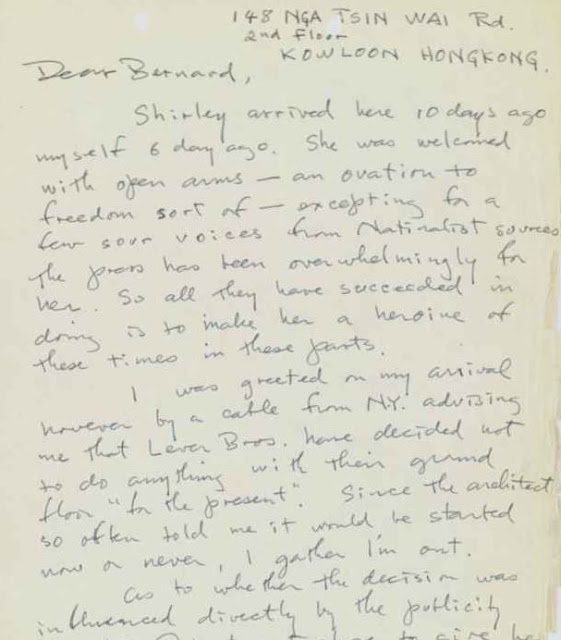 148 NGA TSIN WAI Rd.
2nd Floor
KOWLOON HONGKONG.
Dear Bernard,
Shirley arrived here 10 days ago
myself 6 day ago. She was welcomed
with open arms — an ovation to
freedom sort of — excepting for a
few sour voices from Nationalist sources
the press has been overwhelmingly for
her. So all they have succeeded in
doing is to make her a heroine of
these times in these parts.
I was greeted on my arrival
however by a cable from N.Y. advising
me that Lever Bros. have decided not
to do anything with their ground
floor "for the present". Since the architect
so often told me it would be started
now or never, I gather I'm out.
As to whether the decision was
influenced directly by the publicity
to give her